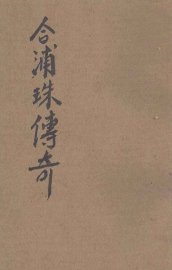 合浦珠傳奇